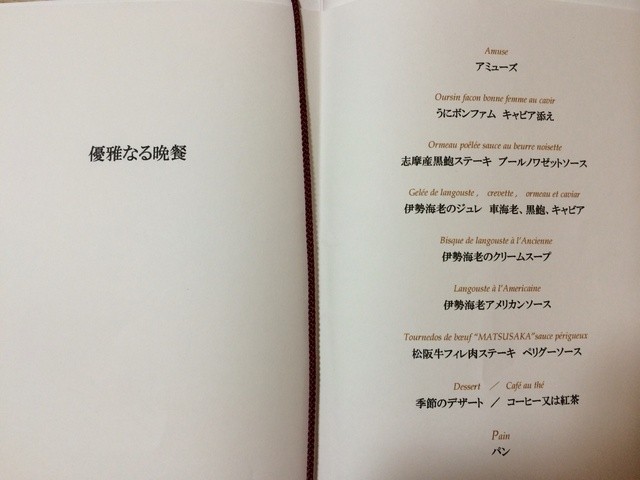 優雅なる晩餐
Amuse
アミューズ
Oursin facon bonne femme au cavir
うにボンファム キャビア添え
Ormeau poêlée sauce au beurre noisette
志摩産黒鮑ステーキ ブールノワゼットソース
Gelée de langouste , crevette , ormeau et caviar
伊勢海老のジュレ 車海老、黒鮑、キャビア
Bisque de langouste à l'Ancienne
伊勢海老のクリームスープ
Langouste à l'Americaine
伊勢海老アメリカンソース
Tournedos de bœuf "MATSUSAKA"sauce périgueux
松阪牛フィレ肉ステーキ ペリグーソース
Dessert / Café au thé
季節のデザート / コーヒー又は紅茶
Pain
パン